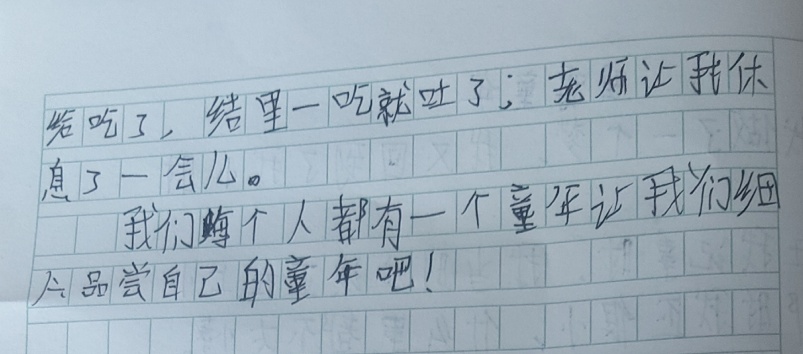 给吃了，结里一吃就吐了；老师让我休
息了一会儿。
我们每个人都有一个童年让我们细
心品尝自己的童年吧！